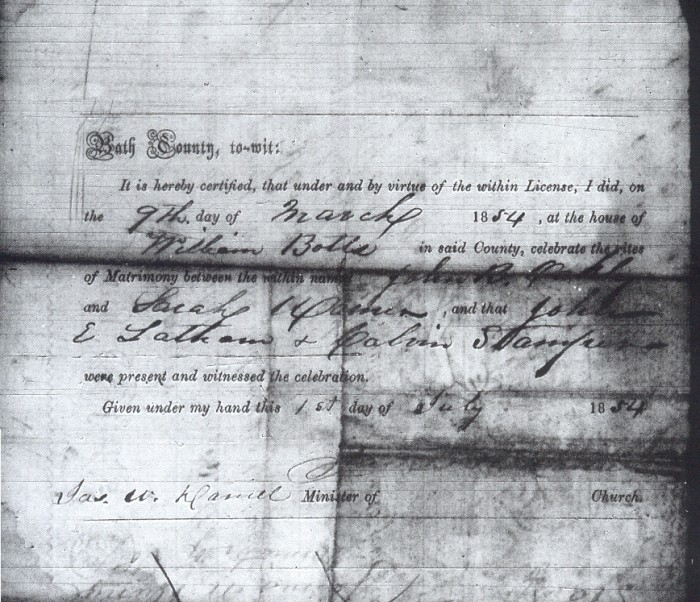 Bath County, to-wit:
It is hereby certified, that under and by virtue of the within License, I did, on
the 9th. day of March 1854, at the house of
William Botts in said County, celebrate the rites
of Matrimony between the within named John R.
and Sarah, and that John
E Latham & Calvin Stamper
were present and witnessed the celebration.
Given under my hand this 1st day of July 1854
Jas. W. Daniel Minister of Church.